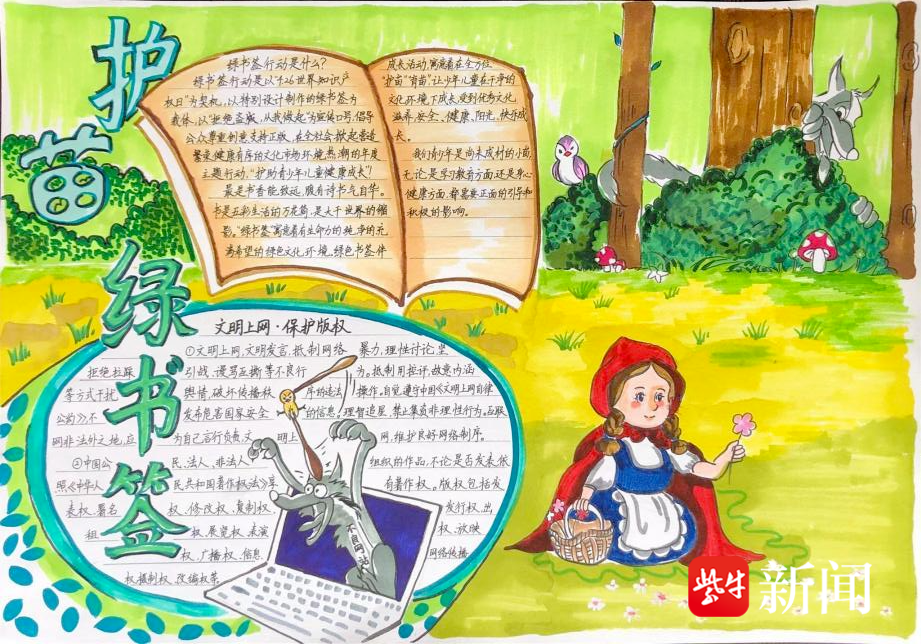 护苗
绿书签
绿书签行动是什么?
绿书签行动是以“4.26世界知识产
权日”为契机,以特别设计制作的绿书签为
载体,以“拒绝盗版,从我做起”为宣传口号,倡导
公众尊重创意支持正版,在全社会掀起营造
繁荣健康有序的文化市场环境热潮的年度
主题行动。“护助青少年儿童健康成长”
最是书香能致远,腹有诗书气自华。
书是五彩生活的万花筒,是大千世界的缩
影。“绿书签”寓意着有生命力的纯净的充
满希望的绿色文化环境,绿色书签伴
成长活动,寓意着在全方位
“护苗”“育苗”让少年儿童在干净的
文化环境下成长,受到优秀文化
滋养,安全、健康、阳光、快乐成
长。
我们青少年是尚未成材的小苗,
无论是学习教育方面还是身心
健康方面,都需要正面的引导和
积极的影响。
文明上网·保护版权
①文明上网,文明发言,抵制网络暴力,理性讨论,坚
拒绝拉踩引战、谩骂互撕等不良行为。抵制用控评、故意内涵
等方式干扰舆情,破坏传播秩序的违法操作。自觉遵守中国《文明上网自律
公约》,不发布危害国家安全的信息。理智追星,禁止集资非理性行为。互联
网非法外之地,应为自己言行负责,文明上网,维护良好网络制序。
②中国公民、法人、非法人组织的作品,不论是否发表,依
照《中华人民共和国著作权法》享有著作权。版权包括发
表权、署名权、修改权、复制权、发行权、出
租权、展览权、表演权、放映
权、广播权、信息网络传播
权、摄制权、改编权等
不良网站
紫牛新闻